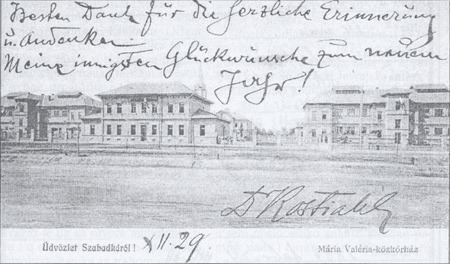 Besten Dank für die herzliche Erinnerung
u. Andenken.
Meine innigsten Glückwünsche zum neuen
Jahr!
Üdvözlet Szabadkáról! XII. 29.
Mária Valéria-közkórház